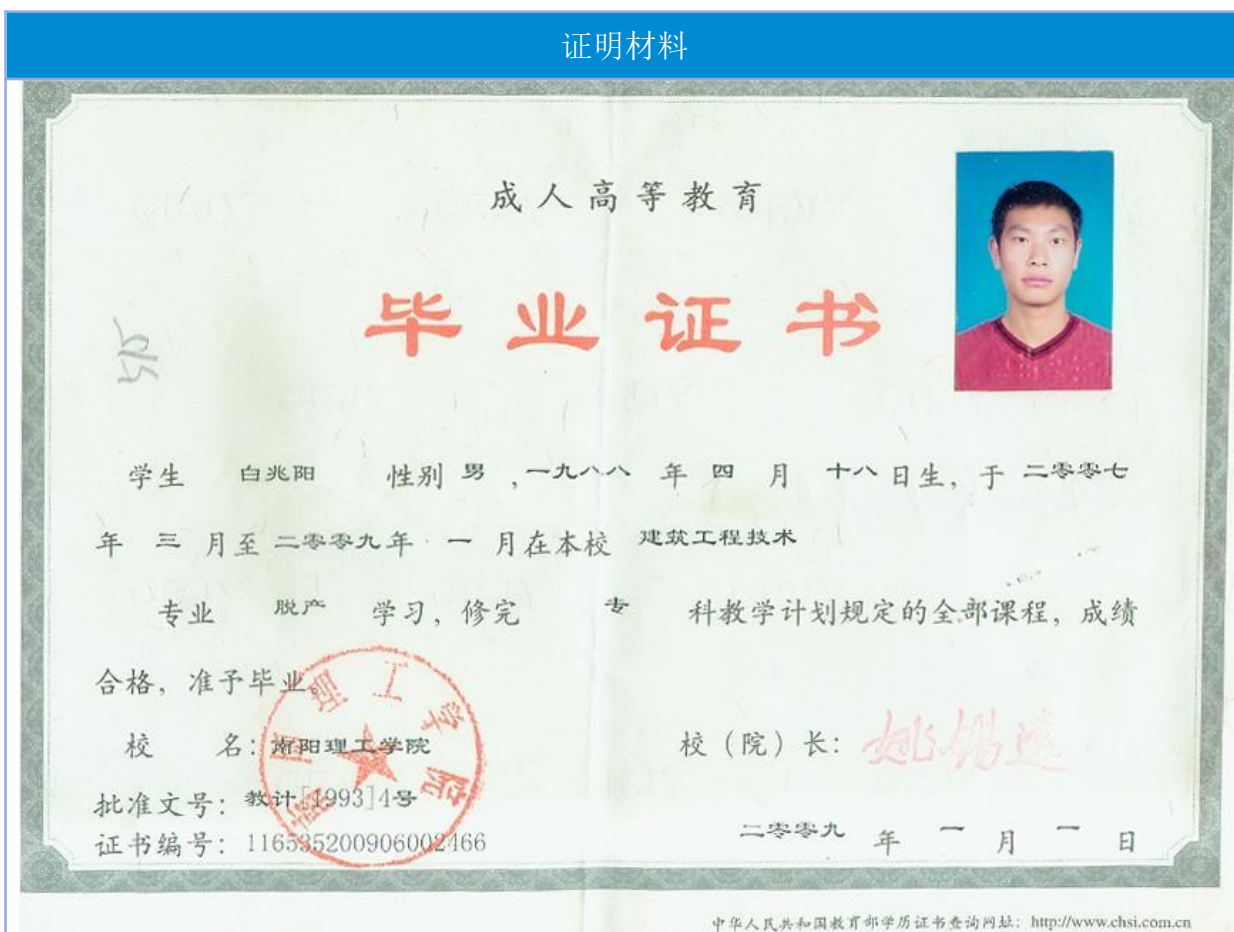 证明材料
成人高等教育
毕业证书
学生 白兆阳 性别 男 ,一九八八 年 四 月 十八 日生, 于 二零零七
年 三 月至 二零零九 年 一 月在本校 建筑工程技术
专业 脱产 学习, 修完 专 科教学计划规定的全部课程, 成绩
合格, 准予毕业。
校 名: 南阳理工学院
校（院）长: 姚锡远
批准文号: 教计[1993]4号
证书编号: 116535200906002466
二零零九 年 一 月 一 日
南阳理工学院
中华人民共和国教育部学历证书查询网址: http://www.chsi.com.cn